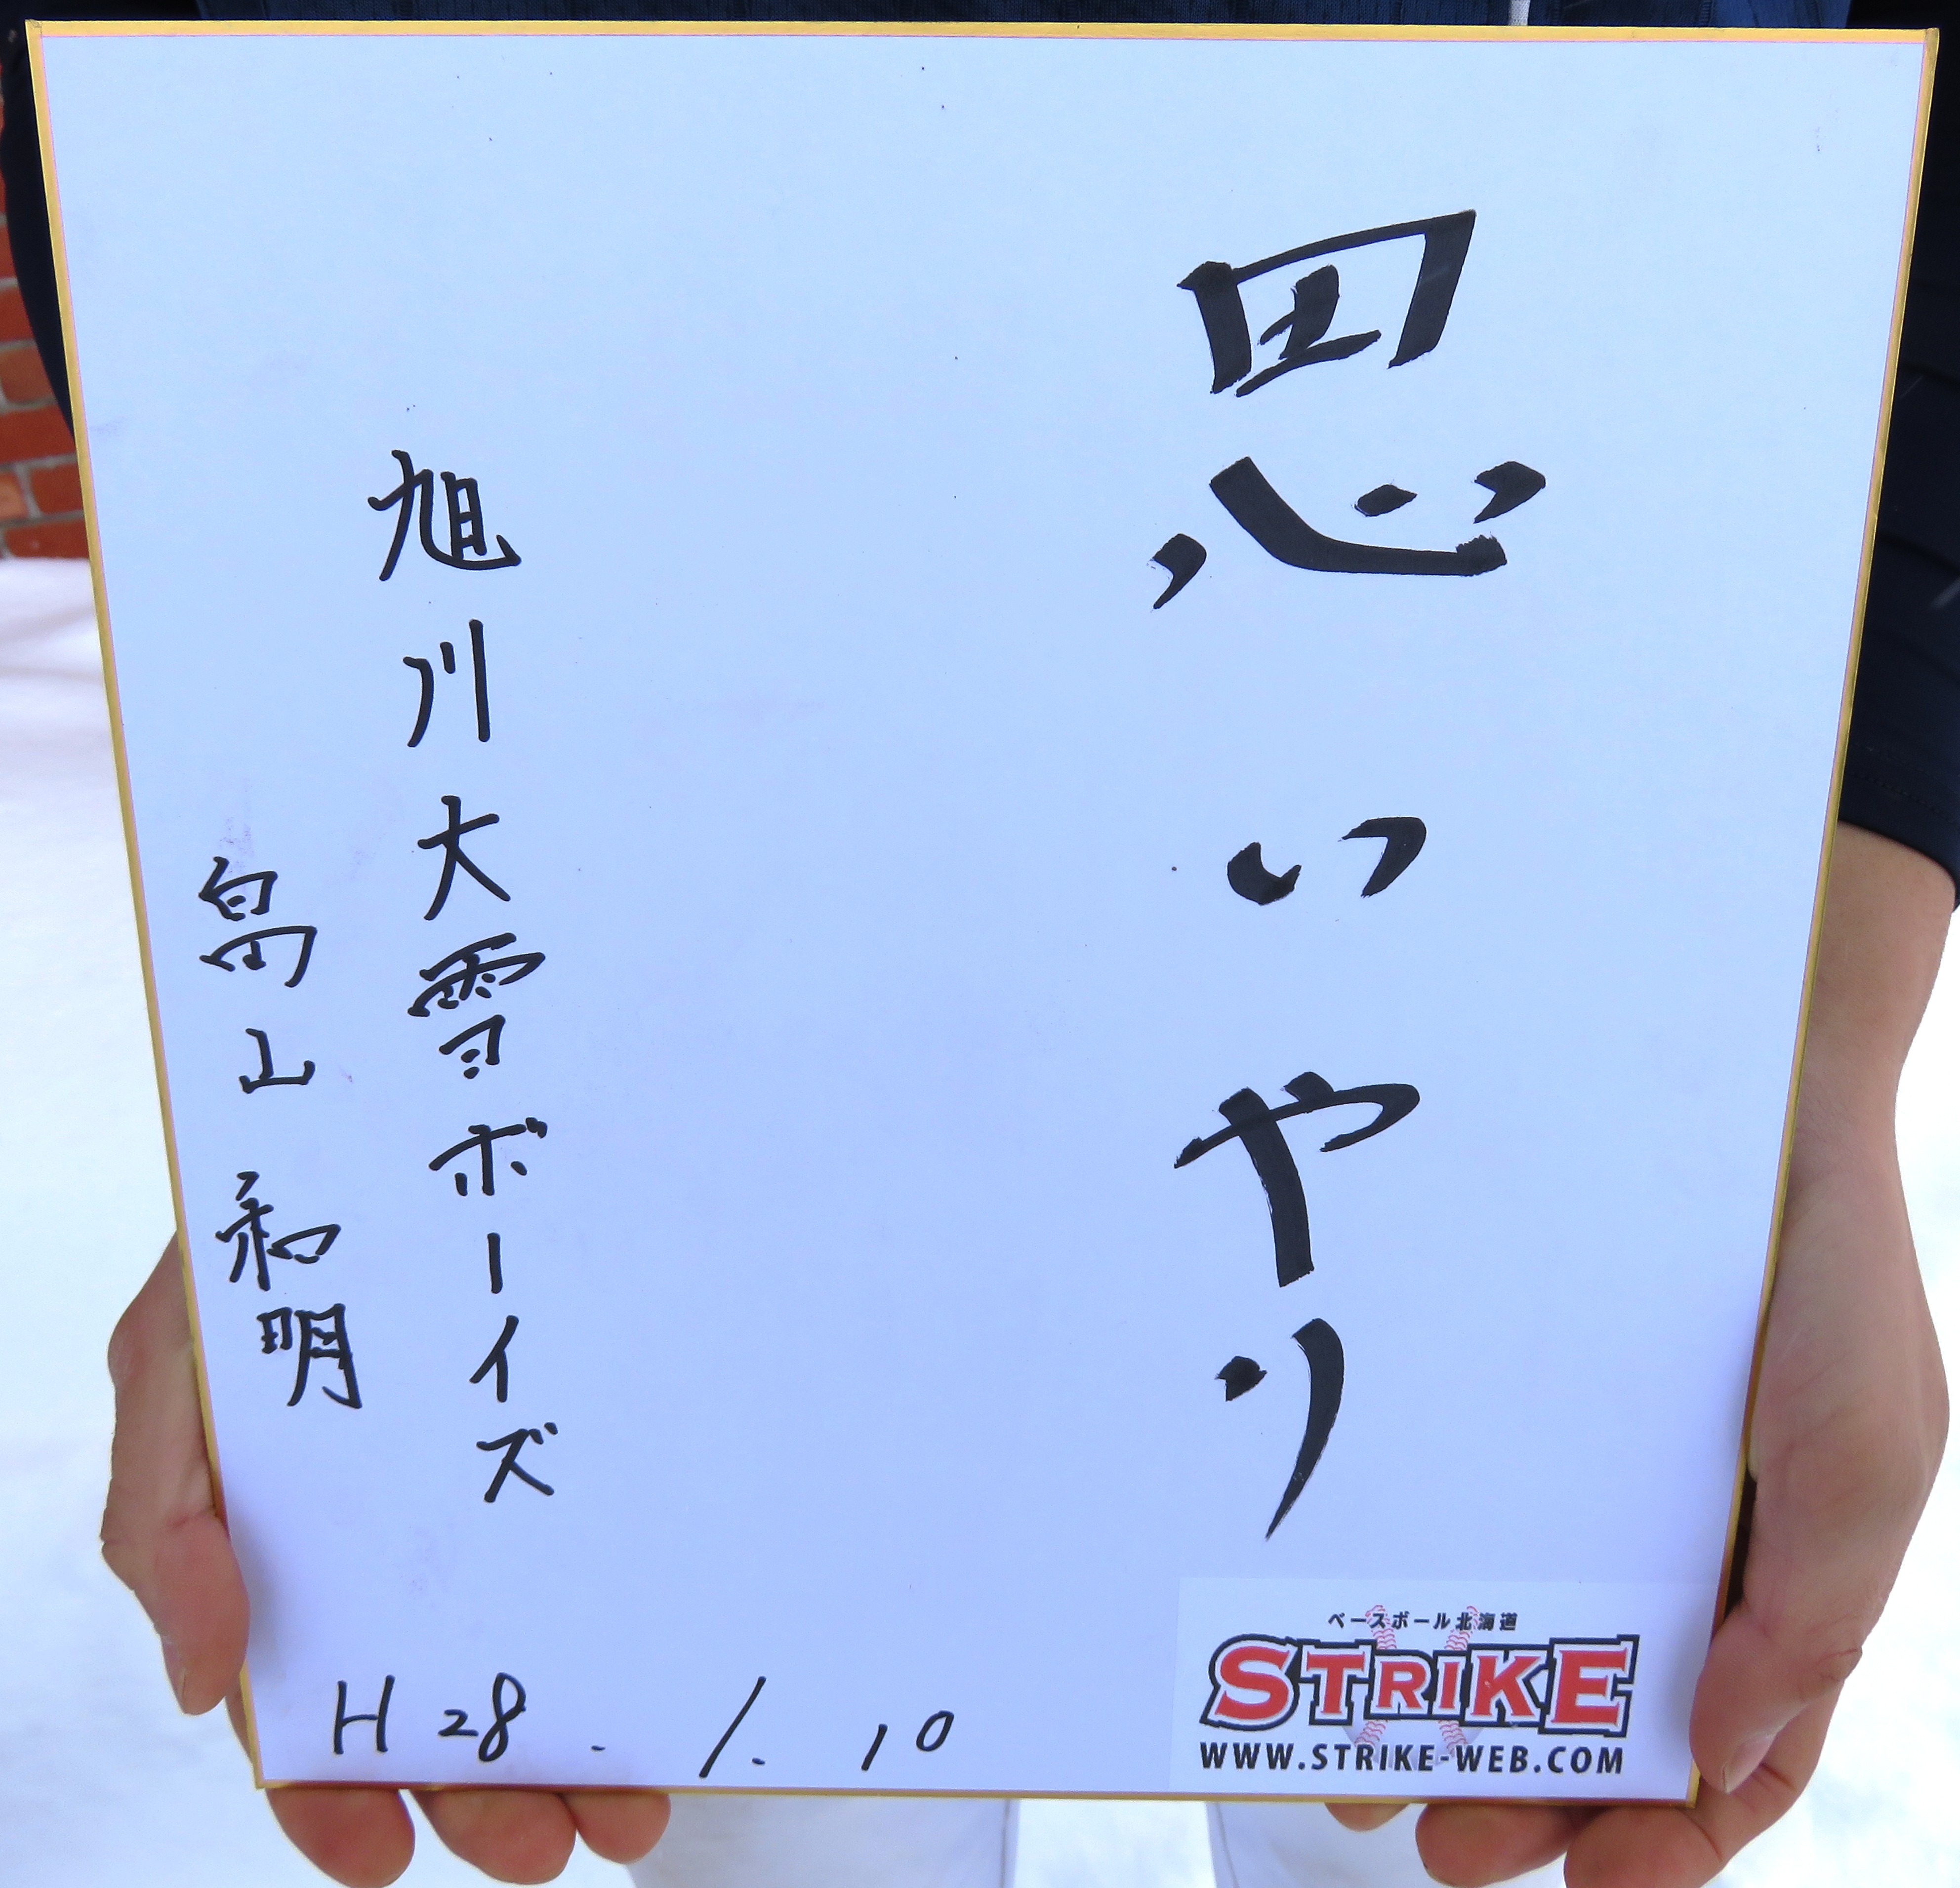 思いやり
旭川大雪ボーイズ
畠山和明
H28.1.10
ベースボール北海道
STRIKE
WWW.STRIKE-WEB.COM